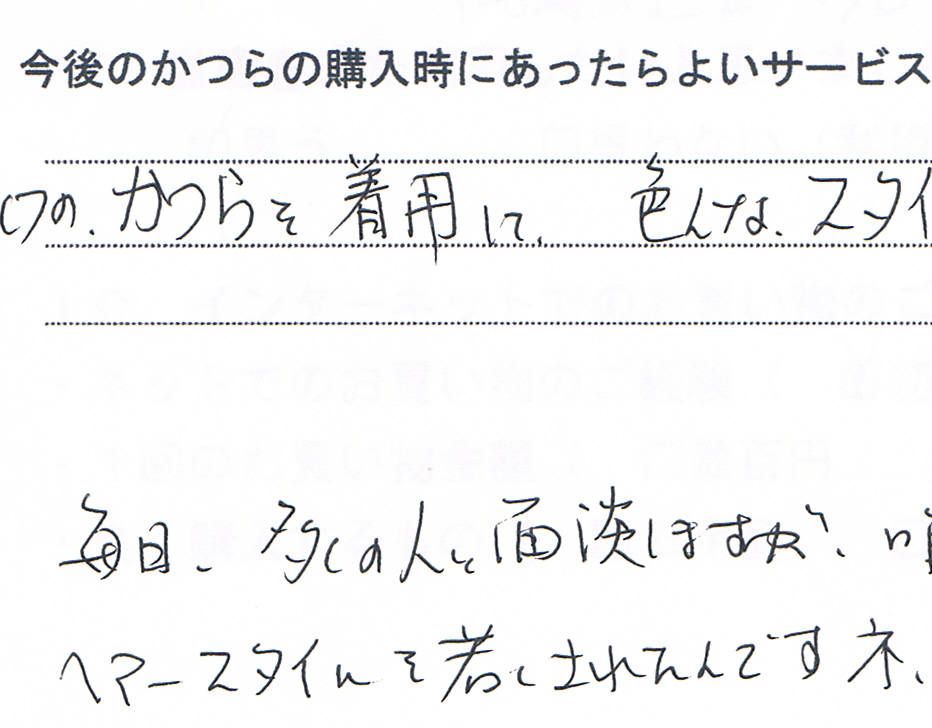 今後のかつらの購入時にあったらよいサービス
の、かつらを着用して、色んな、スタイ
毎日、多くの人と面談しますが、
ヘアースタイルを若くされたんですネ、